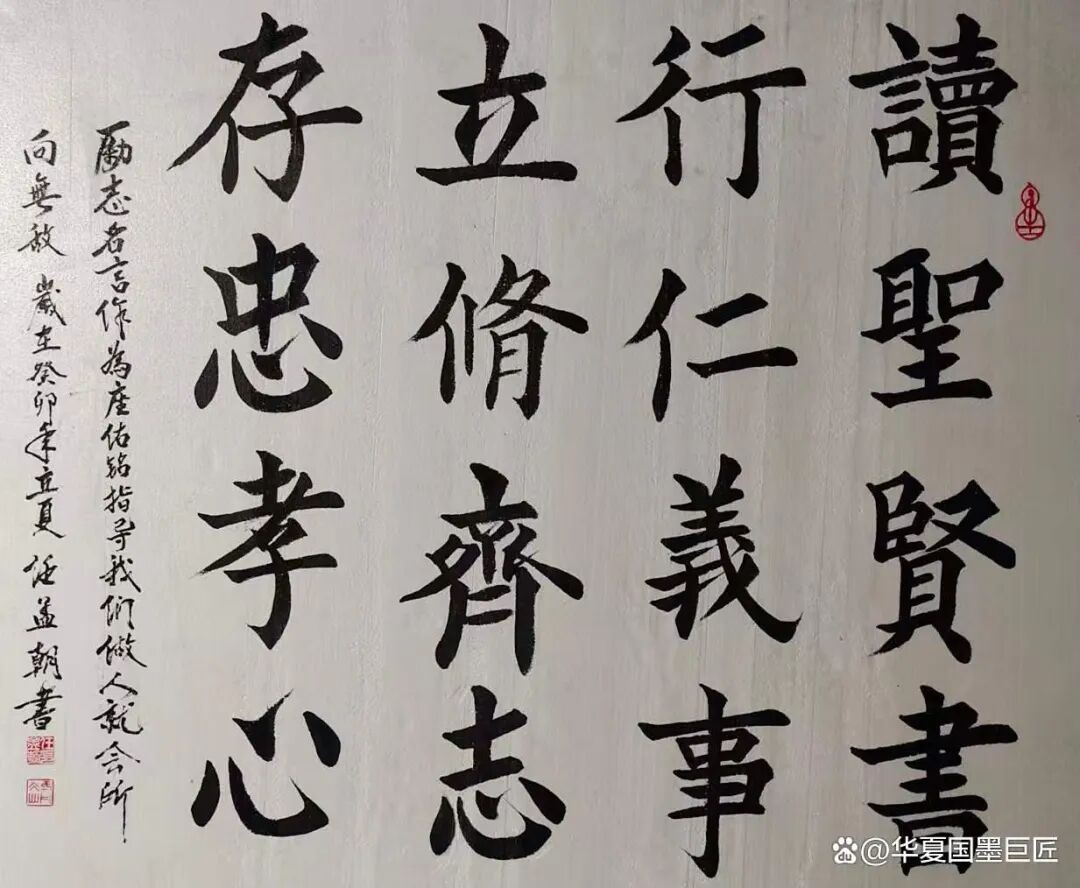 讀聖賢書
行仁義事
立脩齊志
存忠孝心
勵志名言作為座佑銘指导我们做人就会所
向無敌 歲在癸卯年立夏 任孟朝書
@华夏国墨巨匠